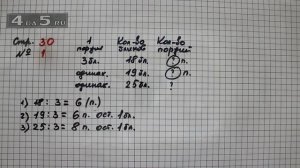 4GA5.RU
Стр. 30
№ 1
1 порция
Кол-во блинов
Кол-во порций
3 бл. 18 бл. ? п.
одинак. 19 бл. ? п.
одинак. 25 бл. ?
1) 18 : 3 = 6 (п.)
2) 19 : 3 = 6 п. ост. 1 бл.
3) 25 : 3 = 8 п. ост. 1 бл.